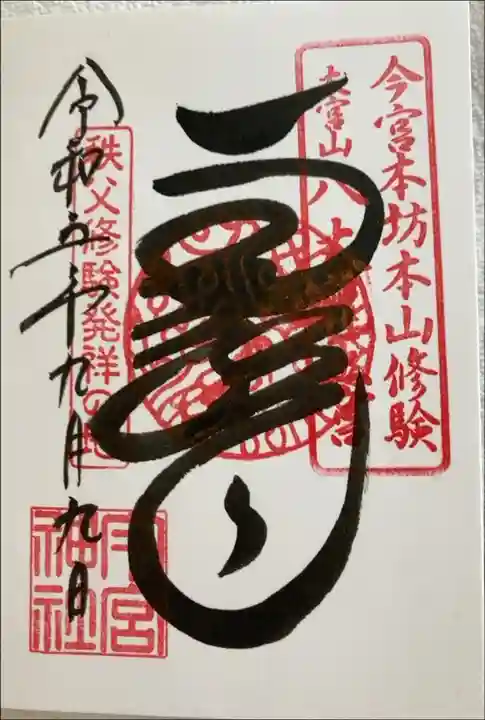 今宮本坊本山修験
大宮山八
秩父修験発祥の地
令和五年九月九日
今宮神社